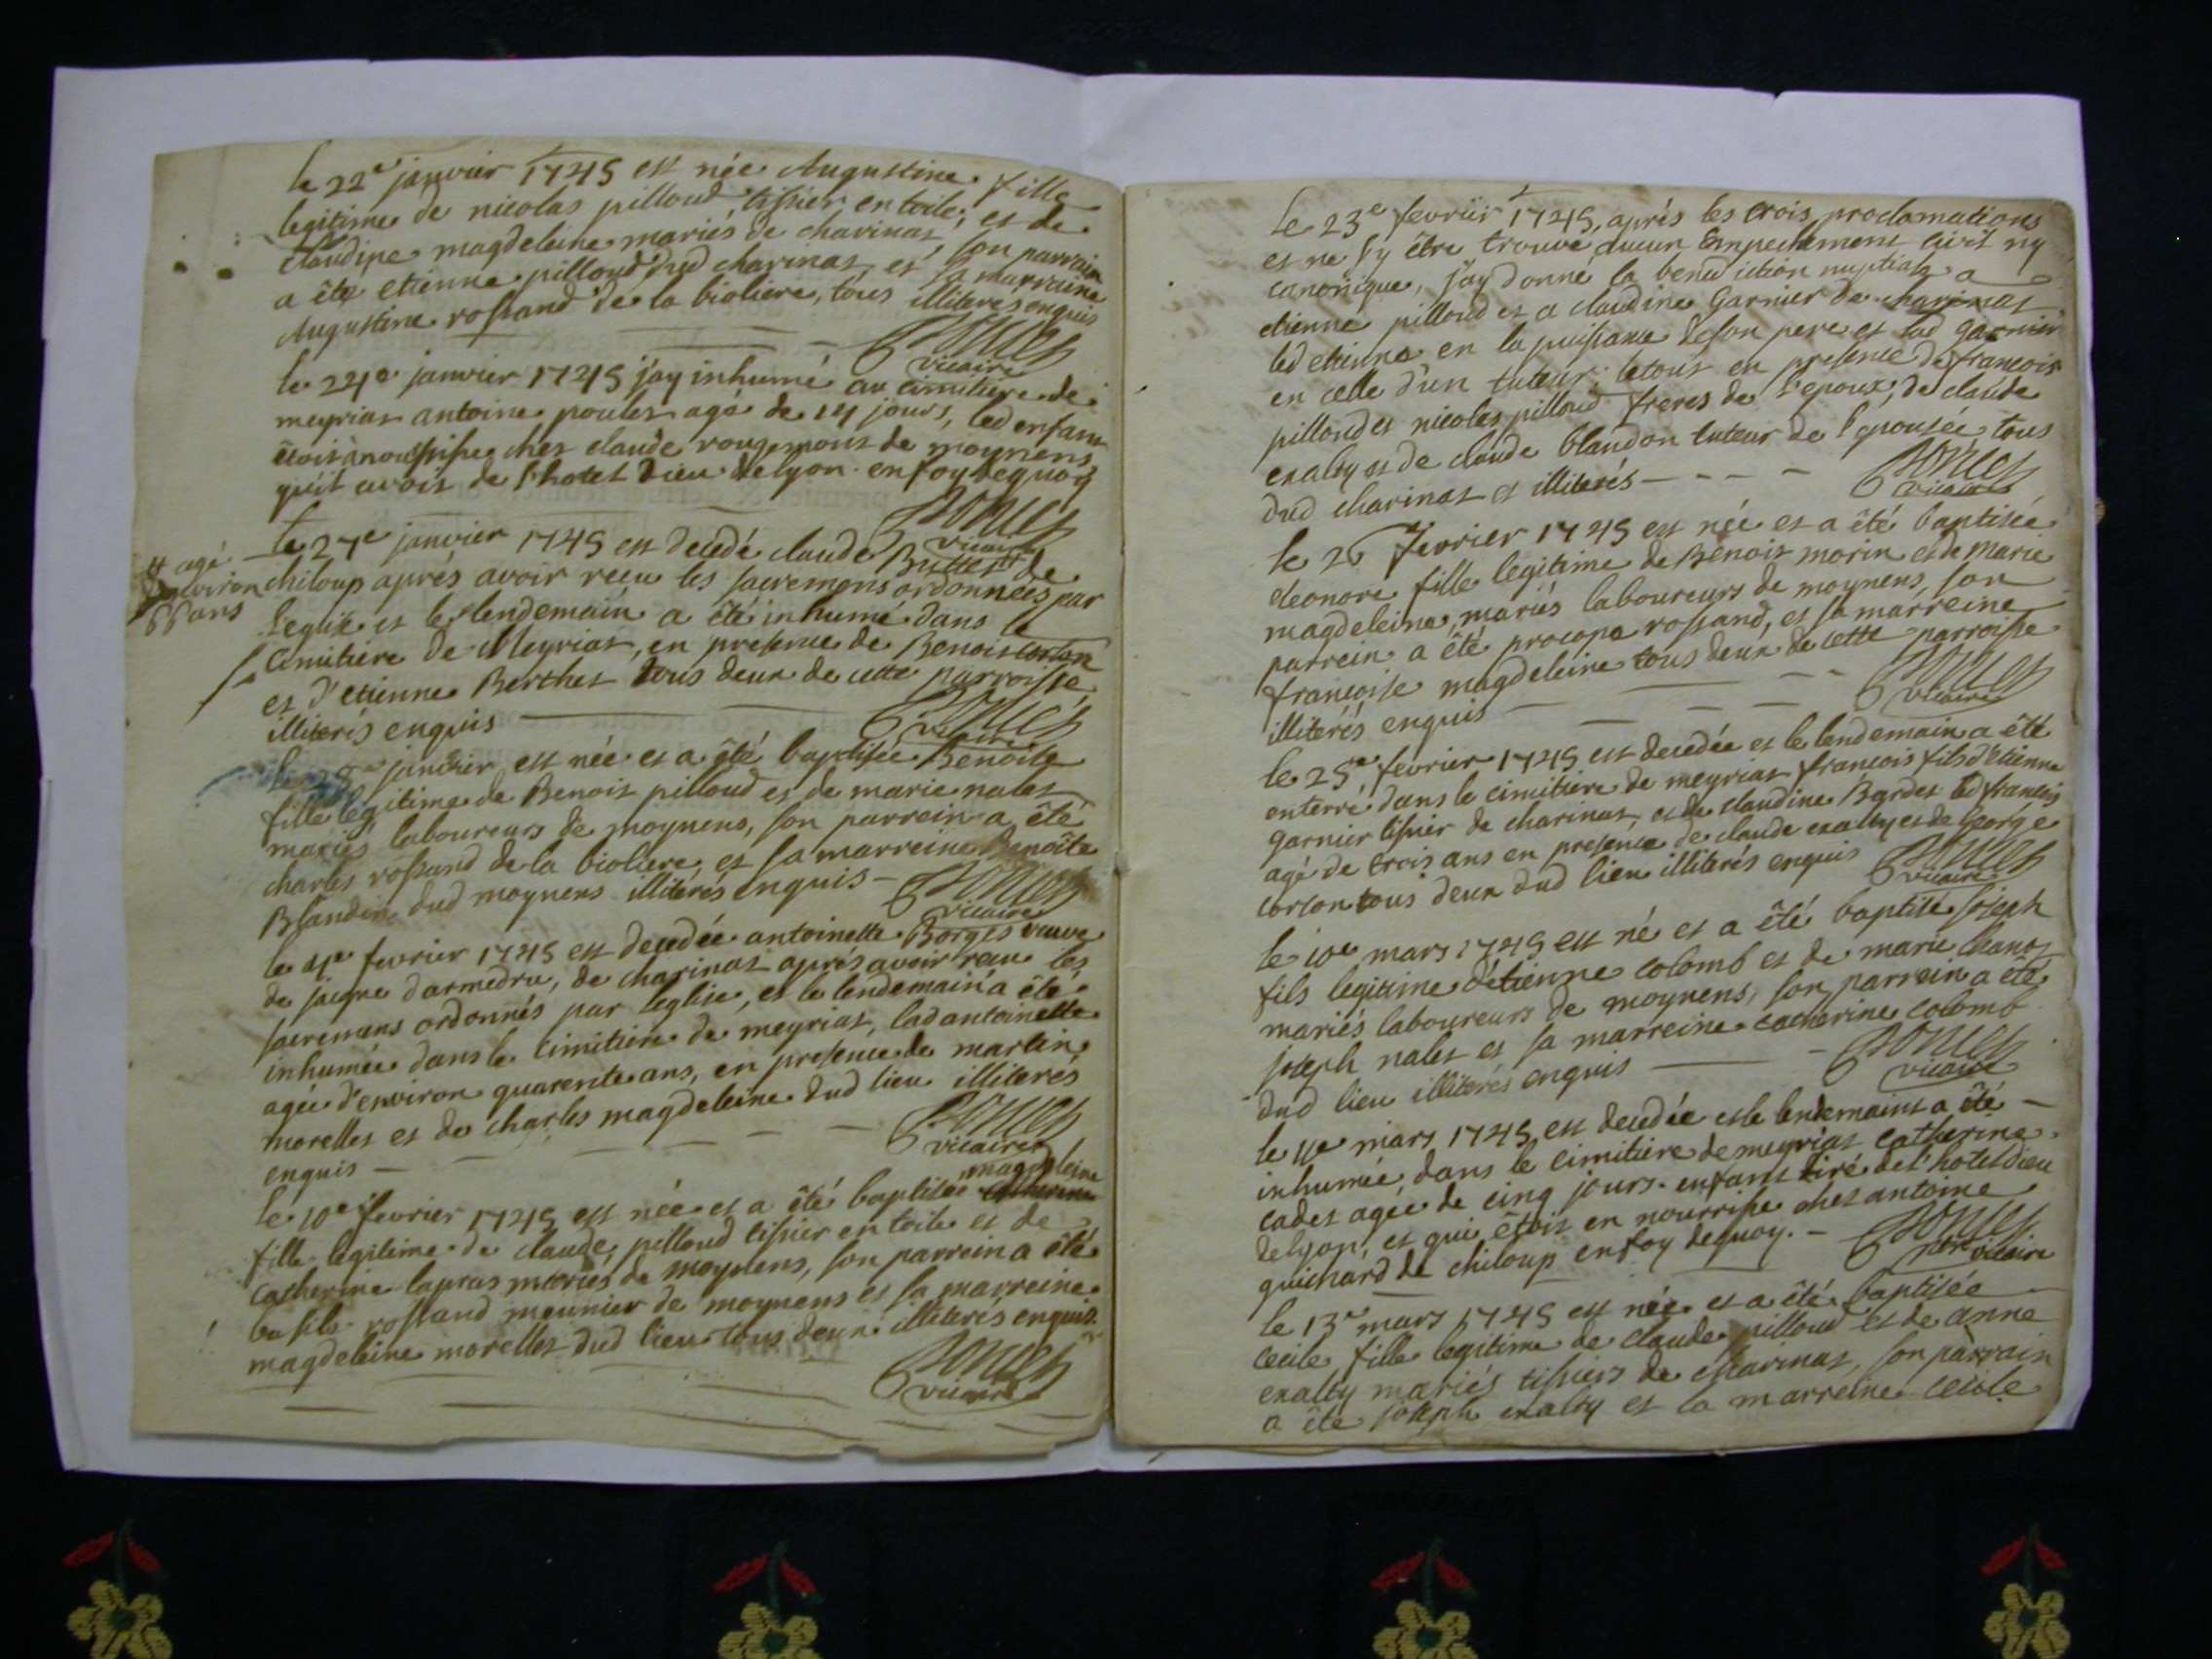 le 22e janvier 1745 est née Augustine fille
legitime de nicolas pilloud, tissier en toile, et de
claudine magdeleine mariés de charinas, son parrain
a été etienne pilloud dud charinas et sa marraine
Augustine rossand de la bioliere, tous illiterés enquis
vicaire
le 24e janvier 1745 j'ay inhumé au cimitiere de
meyrias antoine poulet agé de 14 jours, led enfant
étoit à nourrisse ches claude rougemont de moynens
qu'il avois de l'hotel Dieu de lyon. en foy de quoy
vicaire
le 27e janvier 1745 est decedé claude Buttet de
# agé
d'environ
66 ans
chiloup aprés avoir reçu les sacremens ordonnées par
l'eglise et le lendemain a été inhumé dans le
cimitiere de Meyrias, en presence de Benois corton
et d'etienne Berthet tous deux de cette parroisse
illiterés enquis
vicaire
le 28e janvier est née et a été baptisée Benoite
fille légitime de Benoit pilloud et de marie nalet
mariés laboureurs de moynens, son parrein a été
charles rossand de la bioliere et sa marreine Benoîte
Blandin dud moynens illiterés enquis
vicaire
le 4e fevrier 1745 est decedée antoinette Borges veuve
de jaque darmedru, de charinas aprés avoir reçu les
sacremens ordonnés par l'eglise, et le lendemain a été
inhumée dans le cimitiere de meyrias, lad antoinette
agée d'environ quarente ans, en presence de martin
morellet et de charles magdeleine dud lieu illiterés
enquis
vicaire
magdeleine
le 10e fevrier 1745 est née et a été baptisée catherine
fille legitime de claude pilloud tissier en toile et de
catherine lapras mariés de moynens, son parrein a été
basile rossand meunier de moynens et sa marreine
magdeleine morellet dud lieu tous deux illiterés enquis
vicaire
Le 23e fevrier 1745, aprés les trois proclamations
et ne s'y être trouvé aucun empechement civil ny
canonique, j'ay donné la benediction nuptiale a
etienne pilloud et a claudine Garnier de charinas
led etienne en la puissance de son pere et lad garnier
en celle d'un tuteur: le tout en presence de francois
pilloud et nicolas pilloud freres de l'epoux, de claude
exalty et de claude blandon tuteur de l'epousée tous
dud charinas et illiterés
vicaire
le 26 fevrier 1745 est née et a été baptisée
eleonore fille legitime de Benoit morin et de Marie
magdeleine, mariés laboureurs de moynens, son
parrein a été procope rossand, et sa marreine
françoise magdeleine tous deux de cette parroisse
illiterés enquis
vicaire
le 25e fevrier 1745 est decedée et le lendemain a été
enterré dans le cimitiere de meyrias francois fils d'etienne
garnier tissier de charinas, et de claudine Bardet led francois
agé de trois ans en presence de claude exalty et de George
corton tous deux dud lieu illiterés enquis
vicaire
le 10e mars 1745 est né et a été baptisé joseph
fils legitime d'etienne colomb et de marie chanoz
mariés laboureurs de moynens, son parrein a été
joseph nalet et sa marreine catherine colomb
dud lieu illiterés enquis
vicaire
le 11e mars 1745 est decedée et le lendemain a été
inhumée dans le cimitiere de meyrias catherine
cadet agée de cinq jours. enfant tiré de l'hotel dieu
de lyon, et qui étoit en nourrisse ches antoine
guichard de chiloup en foy de quoy.
ptre vicaire
le 13e mars 1745 est née et a été baptisée
cecile, fille legitime de claude pilloud et de anne
exalty mariés tissiers de charinas, son parrain
a été joseph exalty et la marreine cecile